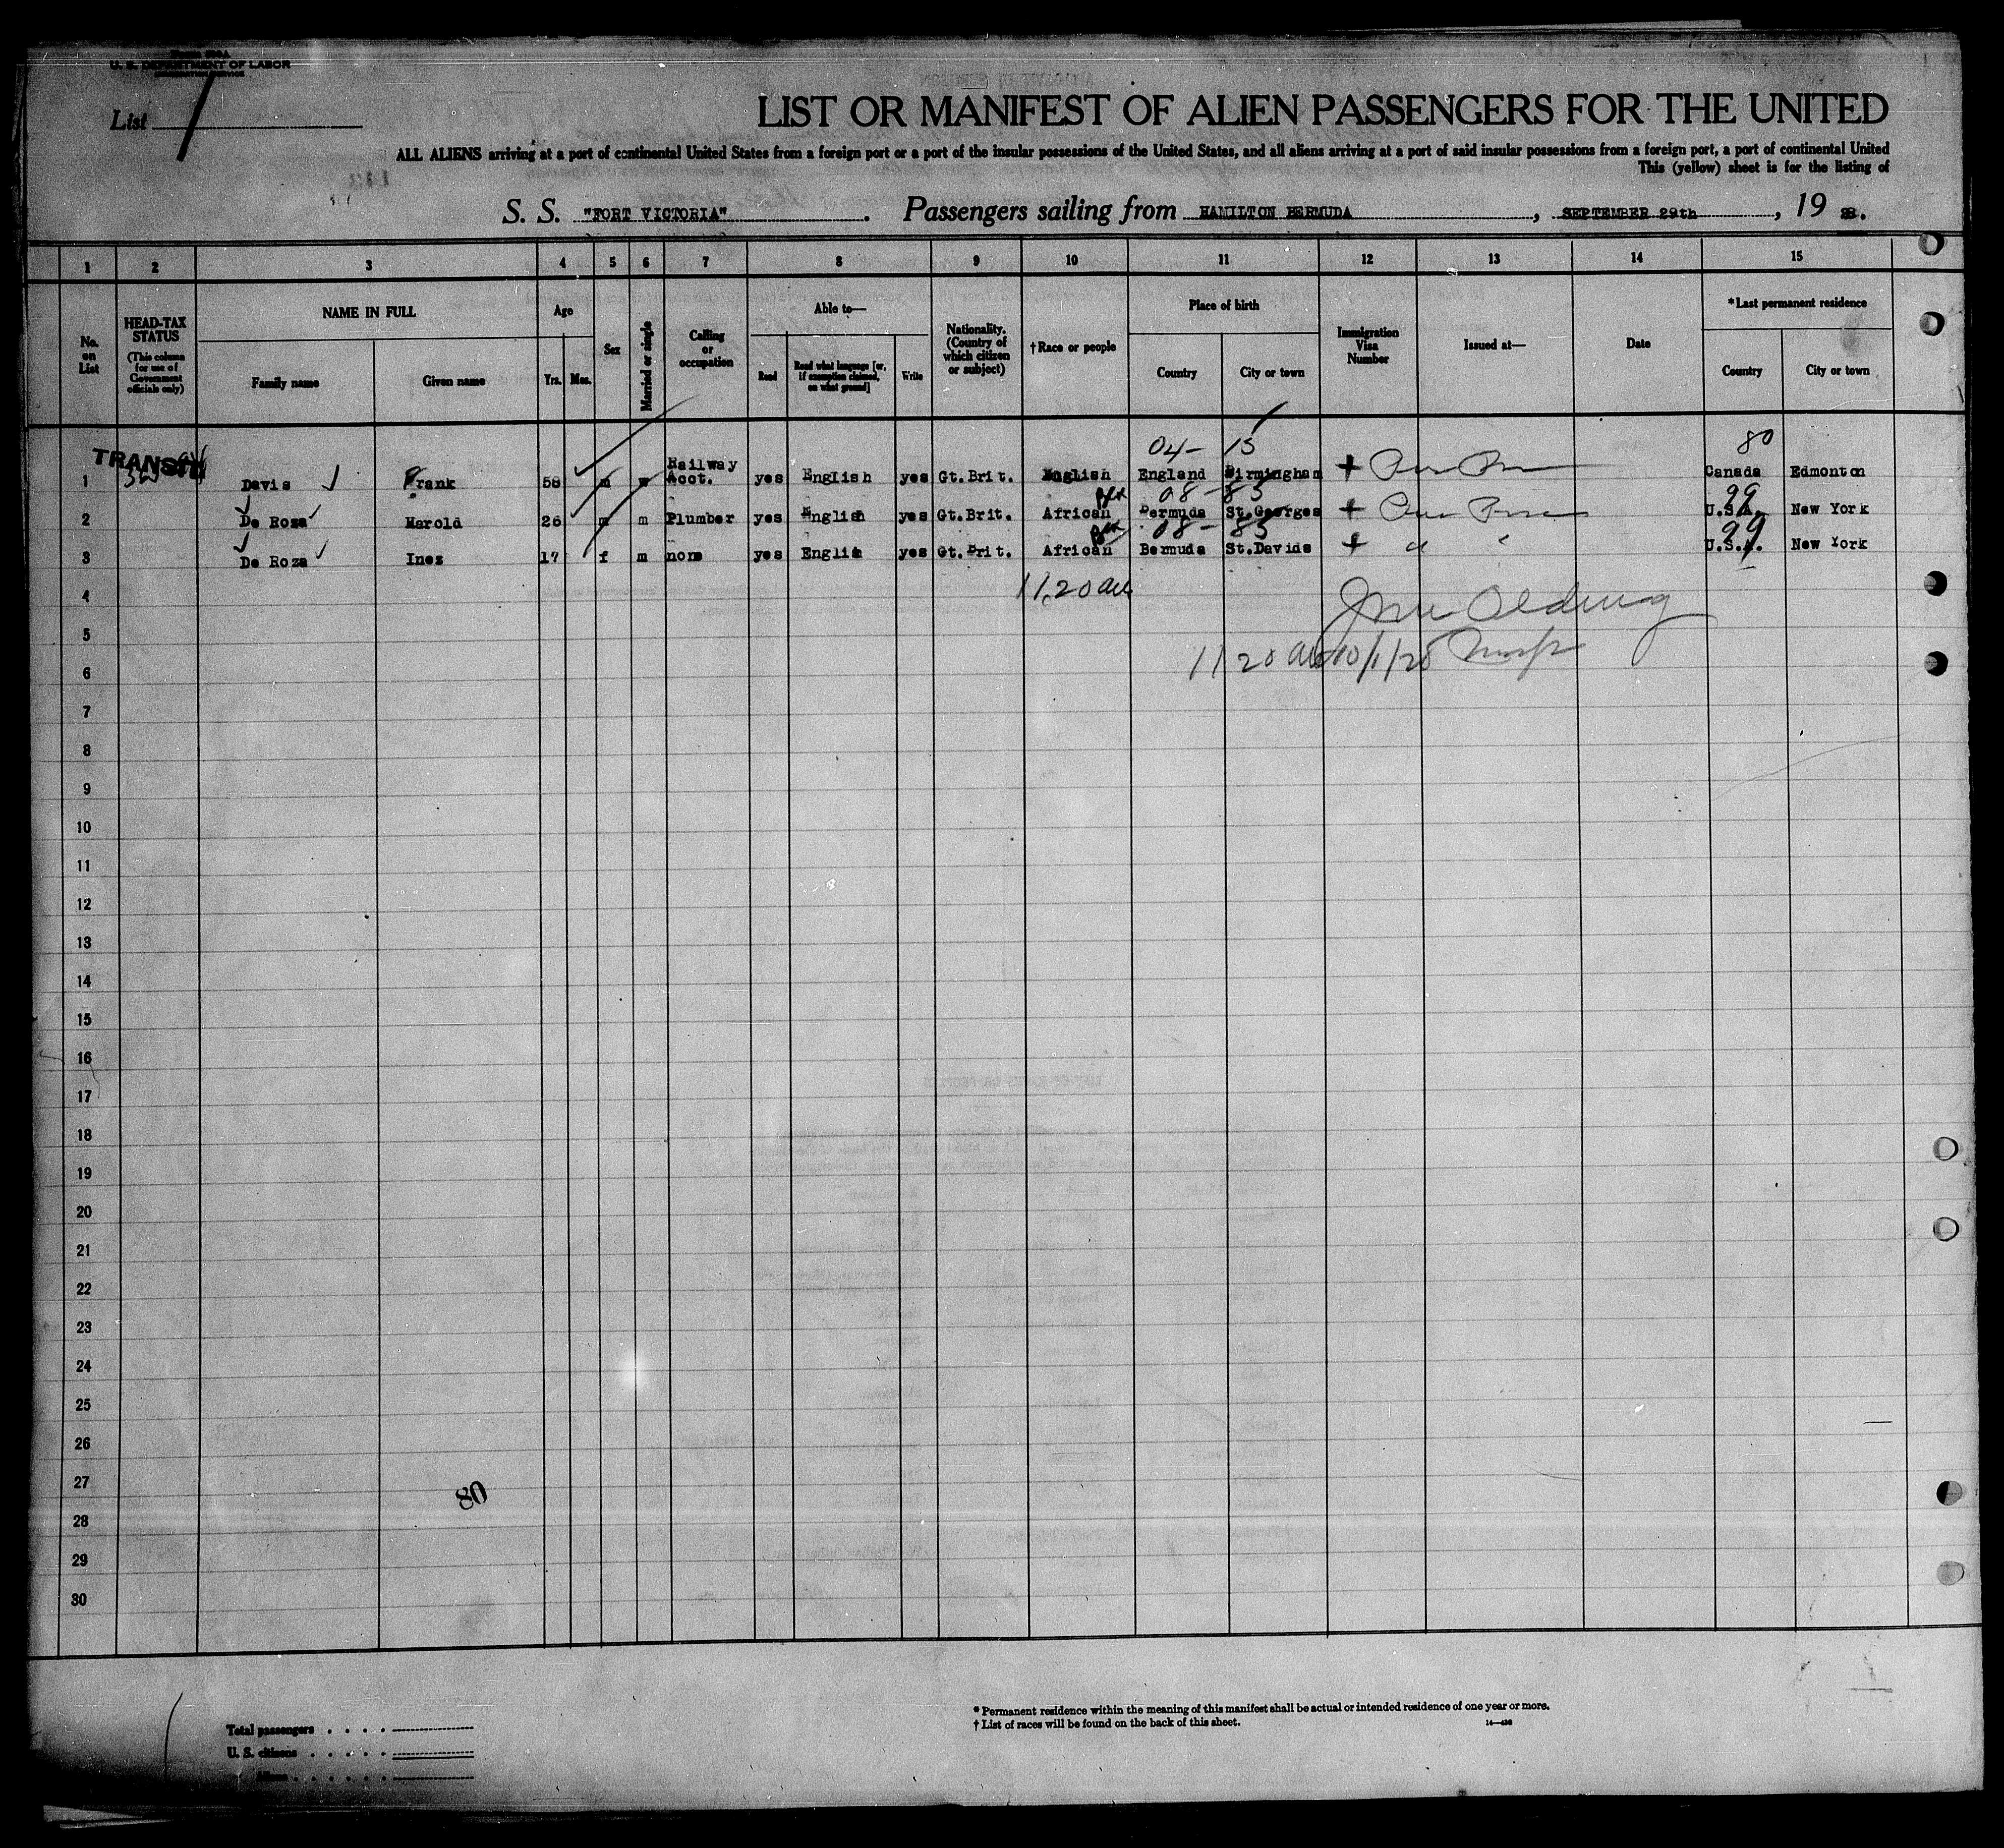 U. S. DEPARTMENT OF LABOR
List
LIST OR MANIFEST OF ALIEN PASSENGERS FOR THE UNITED
ALL ALIENS arriving at a port of continental United States from a foreign port or a port of the insular possessions of the United States, and all aliens arriving at a port of said insular possessions from a foreign port, a port of continental United
This (yellow) sheet is for the listing of
S. S. "FORT VICTORIA". Passengers sailing from HAMILTON BERMUDA, SEPTEMBER 29th, 19
1 2 3 4 5 6 7 8 9 10 11 12 13 14 15
No. on List
HEAD-TAX STATUS
(This column for use of Government officials only)
NAME IN FULL
Family name Given name
Age
Yrs. Mos.
Sex
Married or single
Calling or occupation
Able to—
Read Read what language [or, if exemption claimed, on what ground] Write
Nationality. (Country of which citizen or subject)
†Race or people
Place of birth
Country City or town
Immigration Visa Number
Issued at—
Date
*Last permanent residence
Country City or town
04- 15 80
TRANSIT
1 Davis Frank 58 m Railway Acct. yes English yes Gt.Brit. English England Birmingham Canada Edmonton
08-83 99
2 De Roza Harold 26 m m Plumber yes English yes Gt.Brit. African Bermuda St.Georges U.S.A. New York
08-83 99
3 De Roza Inez 17 f m none yes English yes Gt.Brit. African Bermuda St.Davids U.S.A. New York
11.20 am
4
5
11 20 am 10/1/28
6
7
8
9
10
11
12
13
14
15
16
17
18
19
20
21
22
23
24
25
26
27
80
28
29
30
* Permanent residence within the meaning of this manifest shall be actual or intended residence of one year or more.
† List of races will be found on the back of this sheet.
Total passengers
U. S. citizens
Aliens